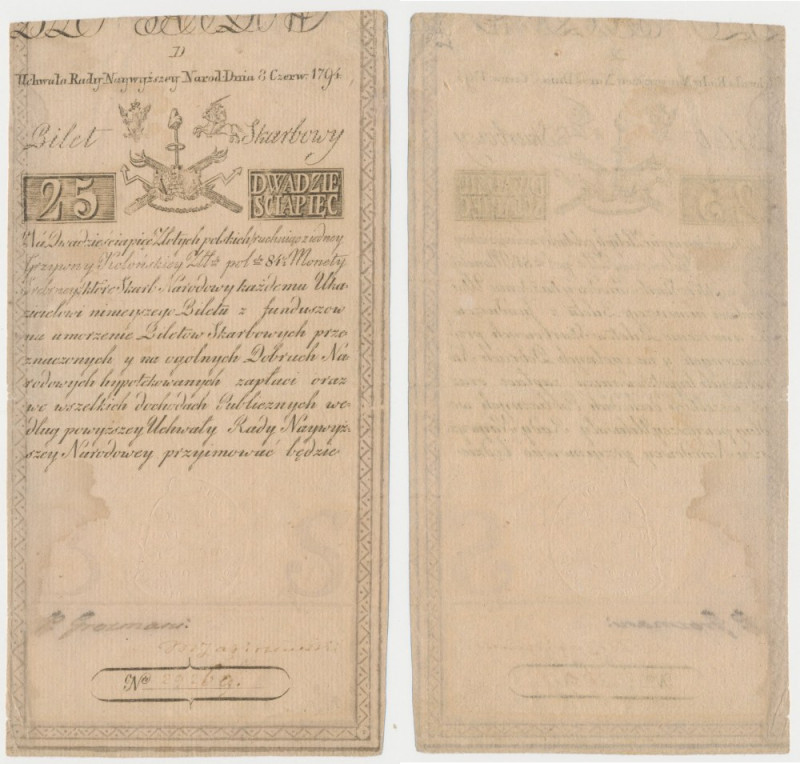 D
Uchwała Rady Naywyższey Narod: Dnia 8 Czerw: 1794
Bilet Skarbowy
25
DWADZIE
ŚCIAPIĘC
Na Dwadzieściapięć Złotych polskich rachuiąc z iedney
Grzywny Kolońskiey Złł: pol: 84½ Monety
Srebrney, które Skarb Narodowy każdemu Uka-
zicielowi nineyszego Biletu z funduszow
na umorzenie Biletow Skarbowych prze-
znaczonych y na ogolnych Dobrach Na-
rodowych hypotekowanych zapłaci oraz
we wszelkich dochodach Publicznych we-
dług powyższey Uchwały Rady Naywyż-
szey Narodowey przyimować będzie
P. Grozmani:
No